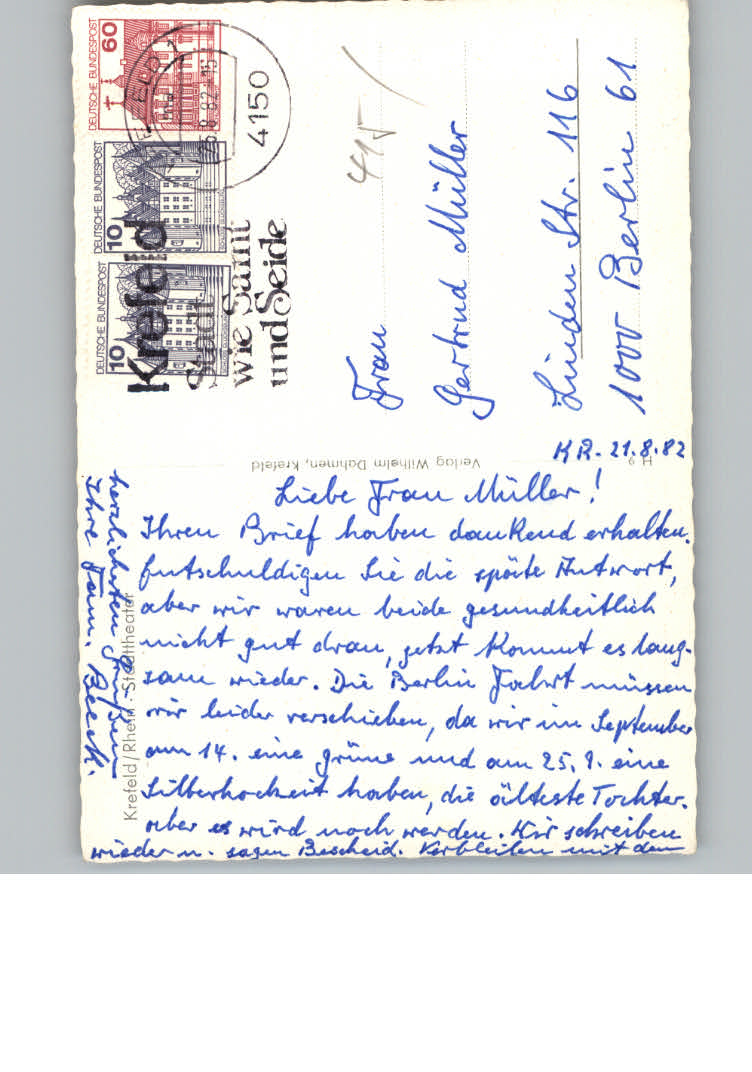 DEUTSCHE BUNDESPOST
60
DEUTSCHE BUNDESPOST
10
DEUTSCHE BUNDESPOST
10
4150
Krefeld
Stadt
wie Samt
und Seide
415
Frau
Gertrud Müller
Linden Str. 116
1000 Berlin 61
Verlag Wilhelm Dahmen, Krefeld
H 9
Krefeld/Rhein - Stadttheater
KR. 21.8.82
Liebe Frau Müller!
Ihren Brief haben dankend erhalten.
Entschuldigen Sie die späte Antwort,
aber wir waren beide gesundheitlich
nicht gut dran, jetzt kommt es lang-
sam wieder. Die Berlin Fahrt müssen
wir leider verschieben, da wir im September
am 14. eine grüne und am 25.9. eine
Silberhochzeit haben, die älteste Tochter.
aber es wird noch werden. Wir schreiben
wieder u. sagen Bescheid. Verbleiben mit den
herzlichsten Grüßen
Ihre Fam.